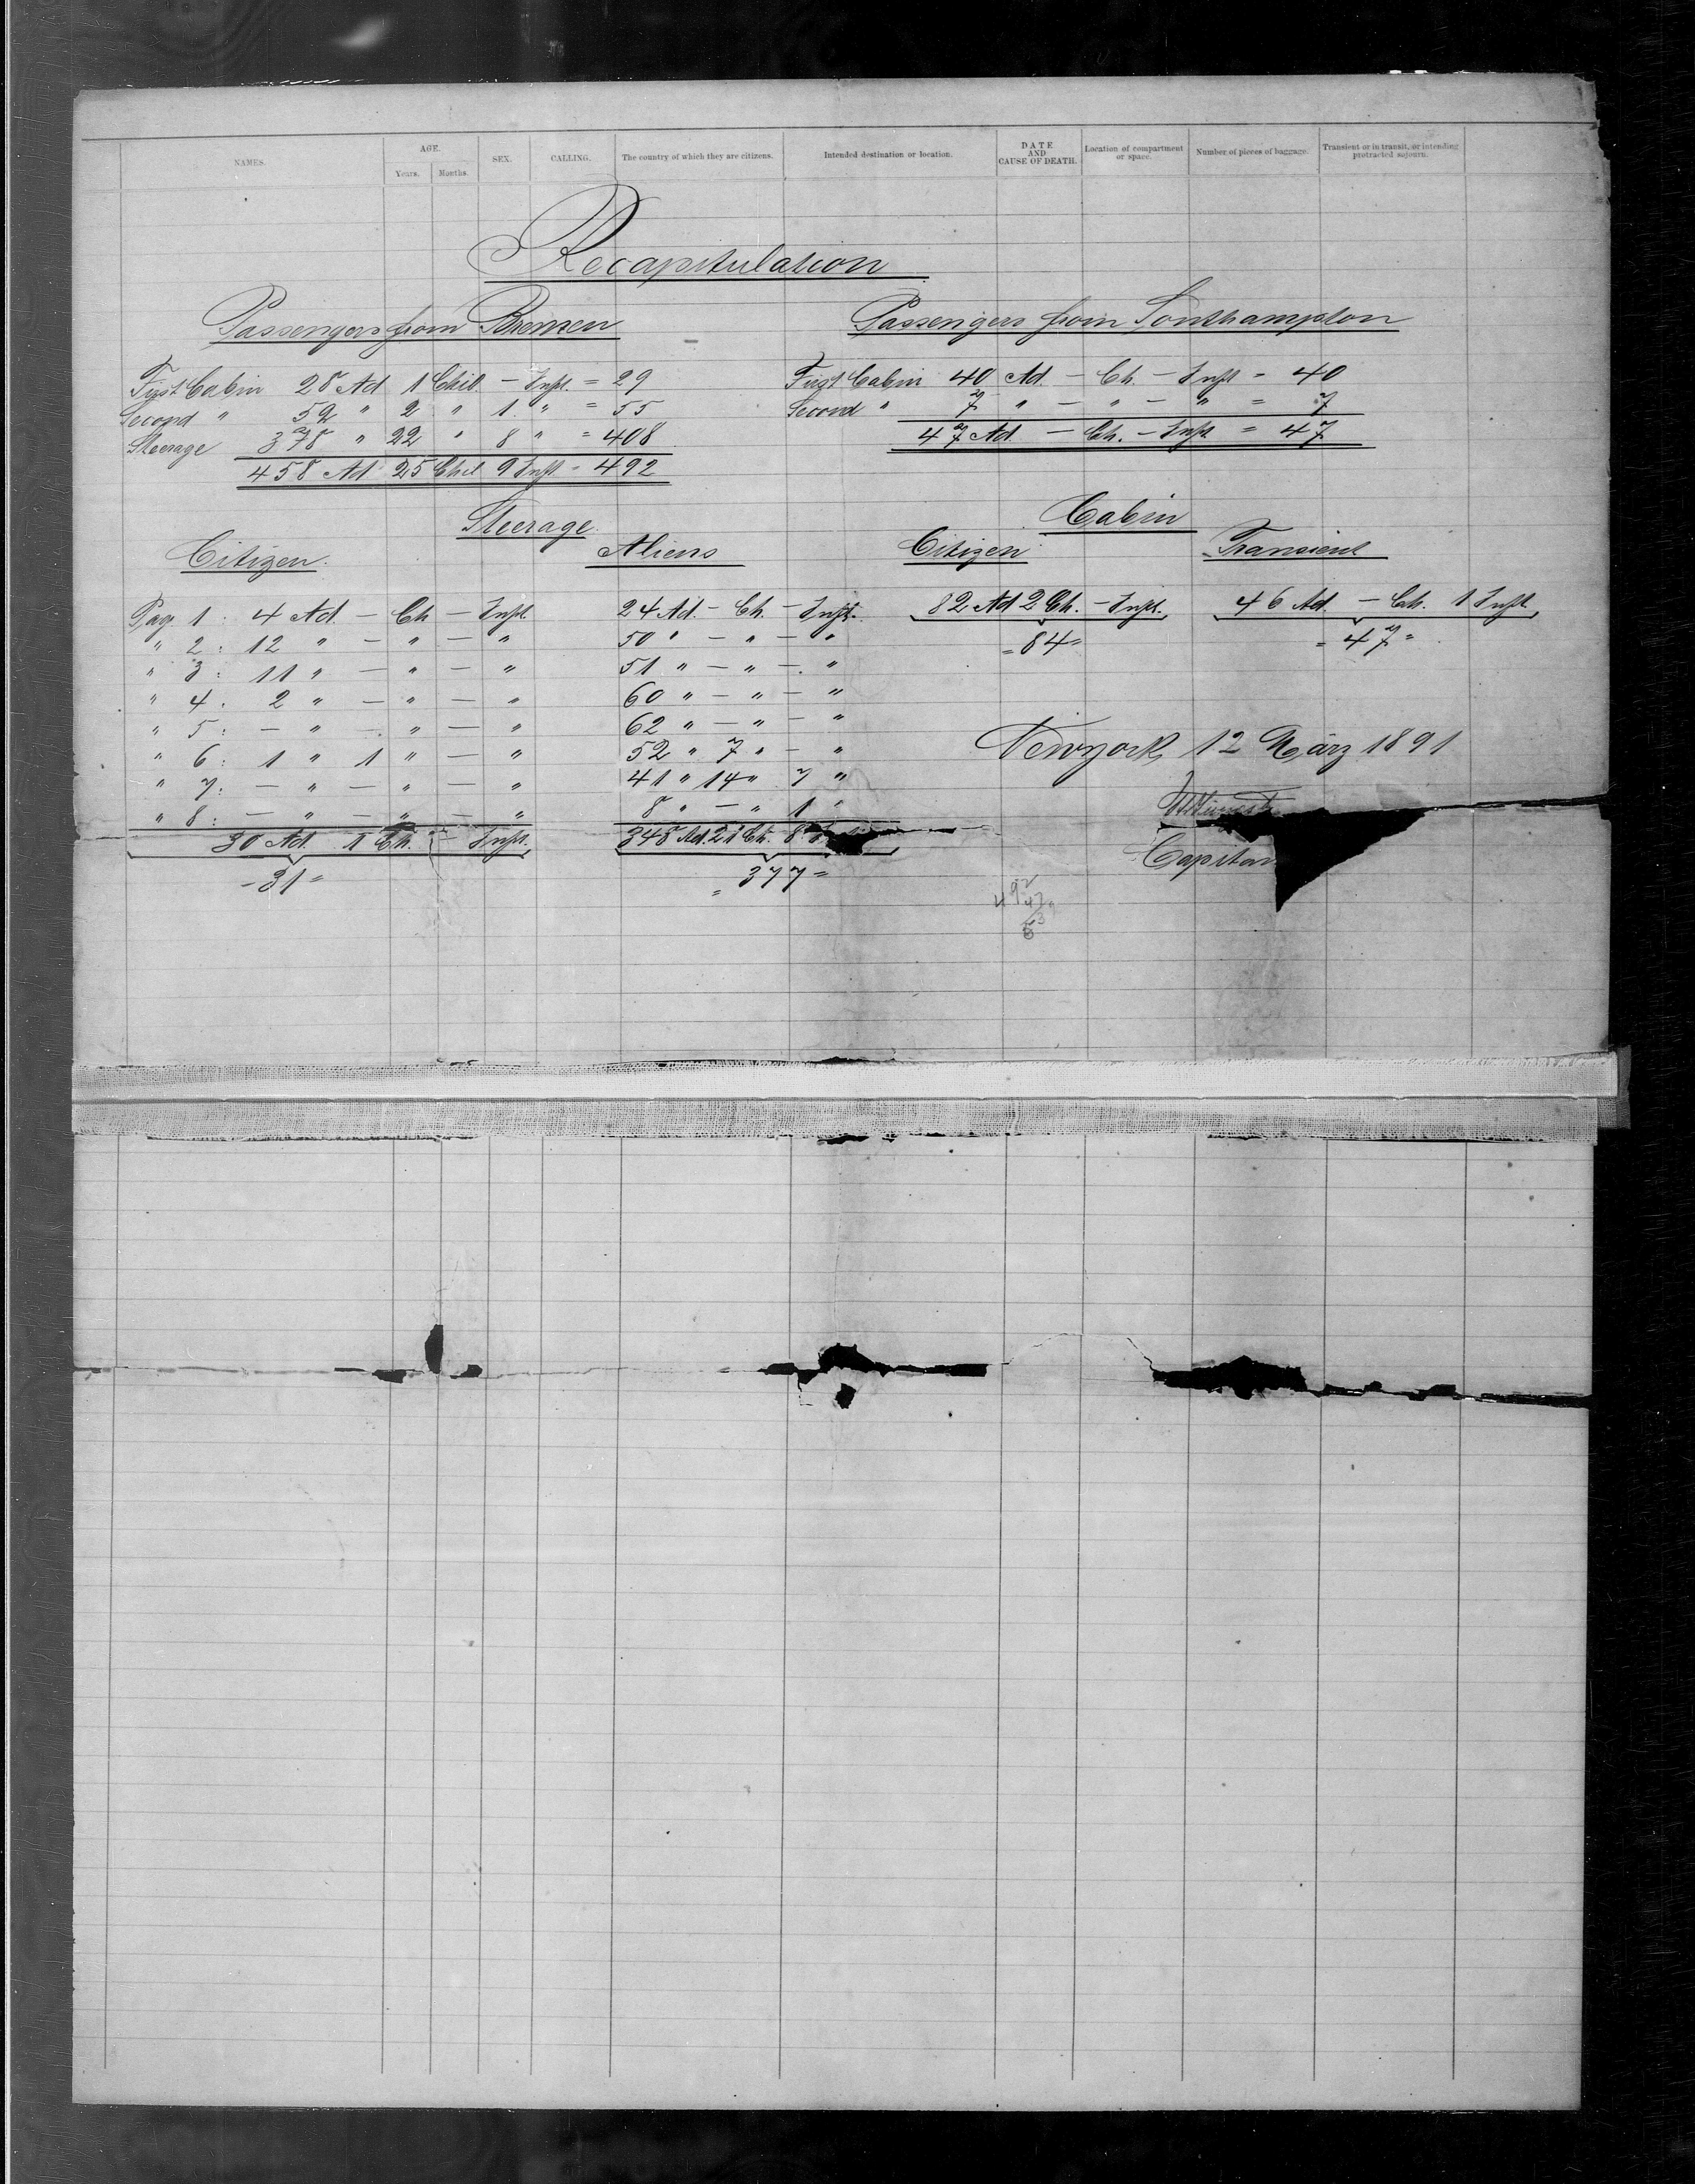 NAMES. AGE. Years. Months. SEX. CALLING. The country of which they are citizens. Intended destination or location. DATE AND CAUSE OF DEATH. Location of compartment or space. Number of pieces of baggage. Transient or in transit, or intending protracted sojourn.
Recapitulation
Passengers from Bremen
First Cabin 28 Ad 1 Chil. - Inft. = 29
Second " 52 " 2 " 1 " = 55
Steerage 378 " 22 " 8 " = 408
458 Ad 25 Chil 9 Inft = 492
Passengers from Southampton
First Cabin 40 Ad - Ch. - Inft = 40
Second " 7 " - " - " = 7
47 Ad - Ch. - Inft = 47
Steerage
Citizen.
Pag. 1 : 4 Ad. - Ch - Inft
" 2 : 12 " - " - "
" 3 : 11 " - " - "
" 4 : 2 " - " - "
" 5 : - " - " - "
" 6 : 1 " 1 " - "
" 7 : - " - " - "
" 8 : - " - " - "
30 Ad. 1 Ch. - Inft.
= 31 =
Aliens
24 Ad - Ch. - Inft.
50 " - " - "
51 " - " - "
60 " - " - "
62 " - " - "
52 " 7 " - "
41 " 14 " 7 "
8 " - " 1 "
348 Ad. 21 Ch. 8
= 377 =
Cabin
Citizen
82 Ad 2 Ch. - Inft.
= 84 =
Transient
46 Ad. - Ch. 1 Inft
= 47 =
Newyork, 12 März 1891
Capitan
492
47